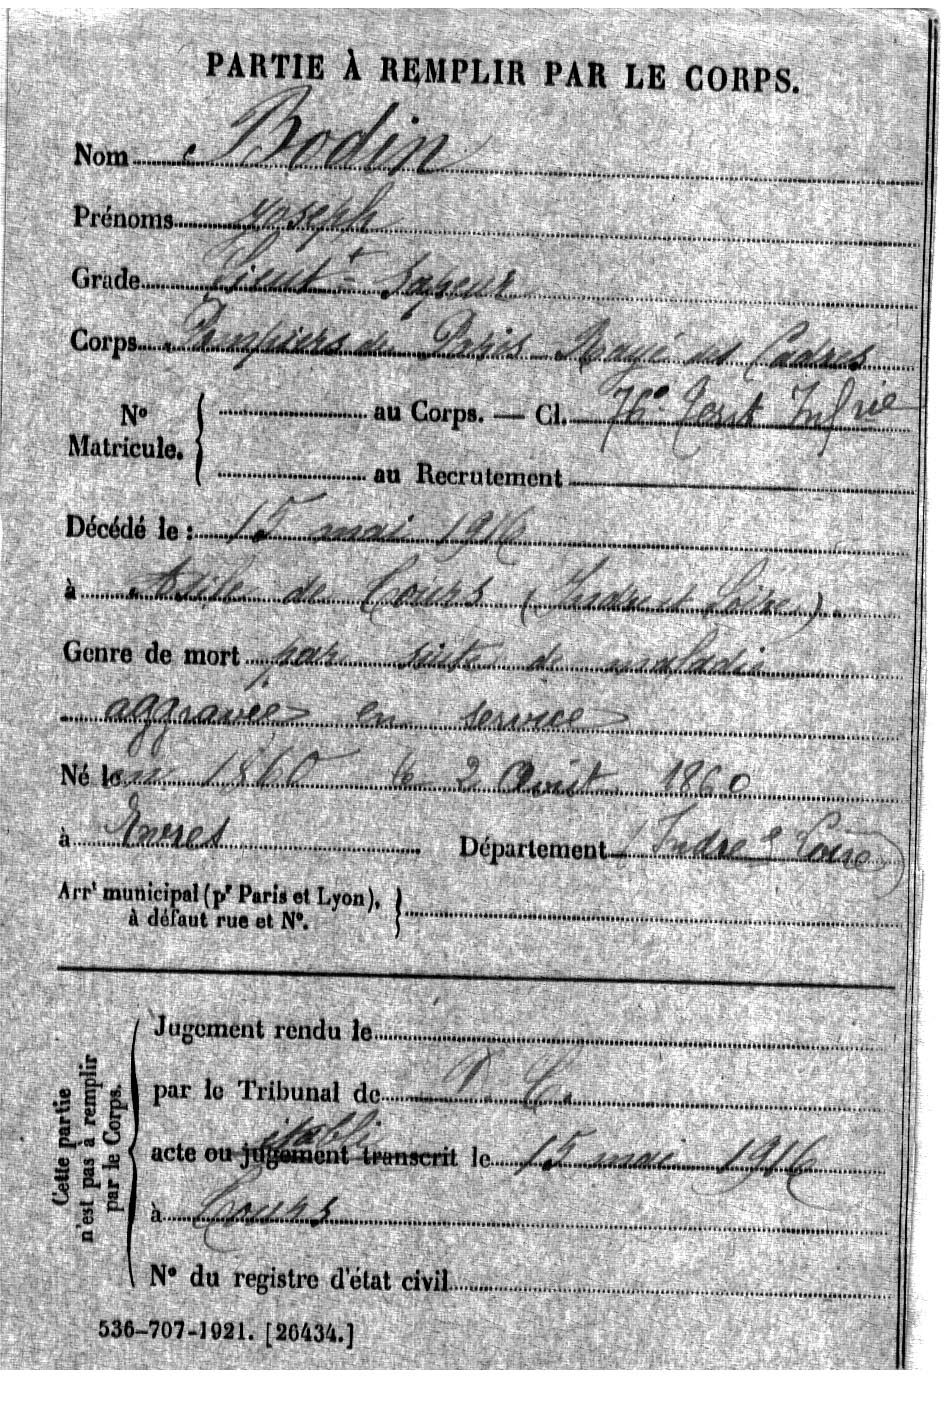 PARTIE À REMPLIR PAR LE CORPS.
Nom Bodin
Prénoms Joseph
Grade Lieut^t Sapeur
Corps Pompiers de Paris Rayé des Cadres
N° Matricule. { au Corps. — Cl. 76e Territ Infrie
au Recrutement
Décédé le : 15 mai 1916
à Asile de Tours (Indre et Loire)
Genre de mort par suite de maladie
aggravée en service
Né le en 1860 le 2 Août 1860
à Département (Indre & Loire)
Arrt municipal (pr Paris et Lyon), à défaut rue et N°. }
Jugement rendu le
par le Tribunal de D. C.
établi
acte ou jugement transcrit le 15 mai 1916
à Tours
N° du registre d'état civil
Cette partie
n'est pas à remplir
par le Corps.
536-707-1921. [26434.]